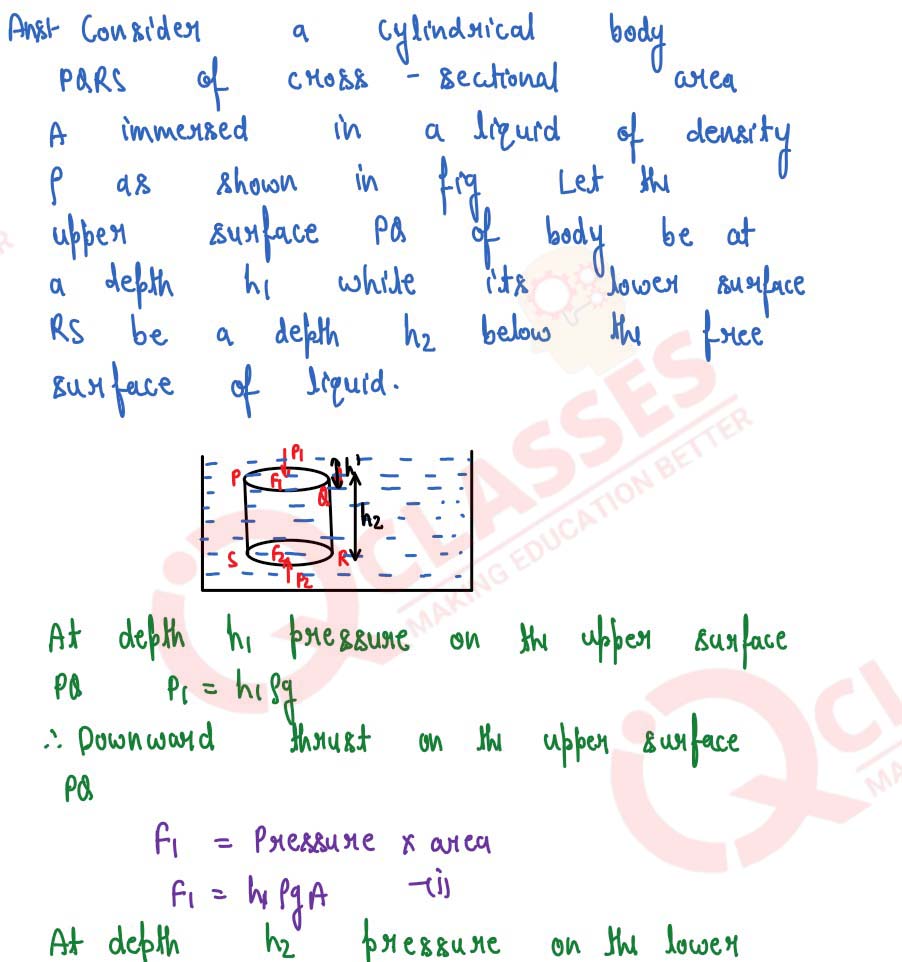 Ans:- Consider a cylindrical body
PQRS of cross - sectional area
A immersed in a liquid of density
ρ as shown in fig Let the
upper surface PQ of body be at
a depth h₁ while its lower surface
RS be a depth h₂ below the free
surface of liquid.
P₁
P F₁ Q h'
h₂
S F₂ R
P₂
IQ CLASSES
MAKING EDUCATION BETTER
At depth h₁ pressure on the upper surface
PQ P₁ = h₁ρg
∴ Downward thrust on the upper surface
PQ
F₁ = Pressure × area
F₁ = h₁ρgA -(i)
At depth h₂ pressure on the lower